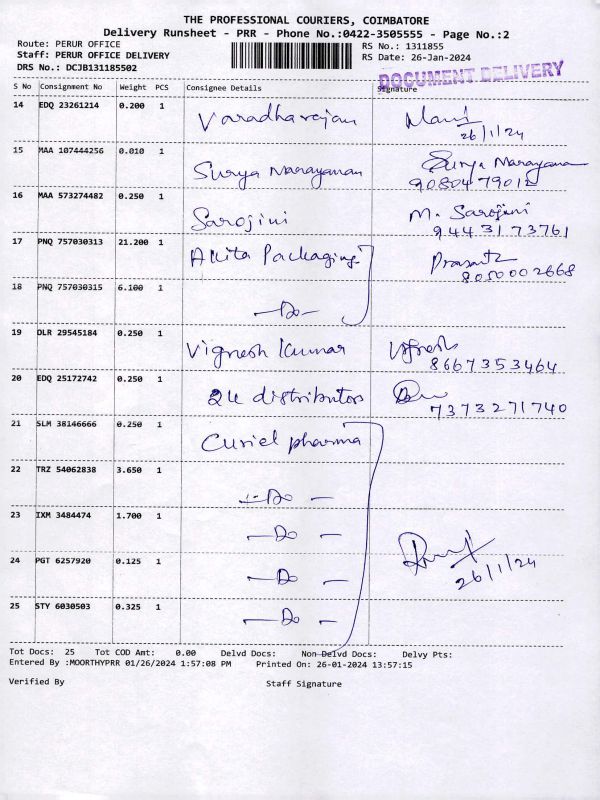 THE PROFESSIONAL COURIERS, COIMBATORE
Delivery Runsheet - PRR - Phone No.:0422-3505555 - Page No.:2
Route: PERUR OFFICE RS No.: 1311855
Staff: PERUR OFFICE DELIVERY RS Date: 26-Jan-2024
DRS No.: DCJB131185502
DOCUMENT DELIVERY
S No Consignment No Weight PCS Consignee Details Signature
14 EDQ 23261214 0.200 1 Varadharajan Mani
26/1/24
15 MAA 107444256 0.010 1 Surya Narayanan Surya Narayana
9080479012
16 MAA 573274482 0.250 1 Sarojini M. Sarojini
9443173761
17 PNQ 757030313 21.200 1 Akita Packaging Prasanth
8050002668
18 PNQ 757030315 6.100 1 —Do—
19 DLR 29545184 0.250 1 Vignesh Kumar Vignesh
8667353464
20 EDQ 25172742 0.250 1 24 distributors
7373271740
21 SLM 38146666 0.250 1 Curiel pharma
22 TRZ 54062838 3.650 1 —Do—
23 IXM 3484474 1.700 1 —Do—
24 PGT 6257920 0.125 1 —Do— 26/1/24
25 STY 6030503 0.325 1 —Do—
Tot Docs: 25 Tot COD Amt: 0.00 Delvd Docs: Non Delvd Docs: Delvy Pts:
Entered By :MOORTHYPRR 01/26/2024 1:57:08 PM Printed On: 26-01-2024 13:57:15
Verified By Staff Signature